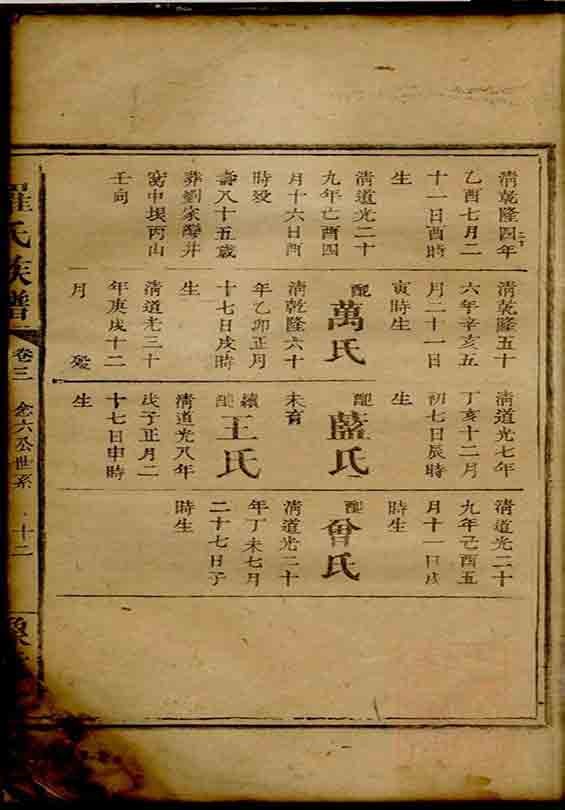 清乾隆四年
乙酉七月二
十一日酉時
生
清道光二十
九年亡酉四
月十六日酉
時歿
壽八十五歲
葬劉家灣井
窩中堠丙山
壬向
清乾隆五十
六年辛亥五
月二十一日
寅時生
配萬氏
清乾隆六十
年乙卯正月
十七日戌時
生
清道光三十
年庚戌十二
月 歿
清道光七年
丁亥十二月
初七日辰時
生
配藍氏
未育
續配王氏
清道光八年
戊子正月二
十七日申時
生
清道光二十
九年己酉五
月十一日戌
時生
配曾氏
清道光二十
年丁未七月
二十七日子
時生
羅氏族譜 卷三 念六公世系 十二 豫